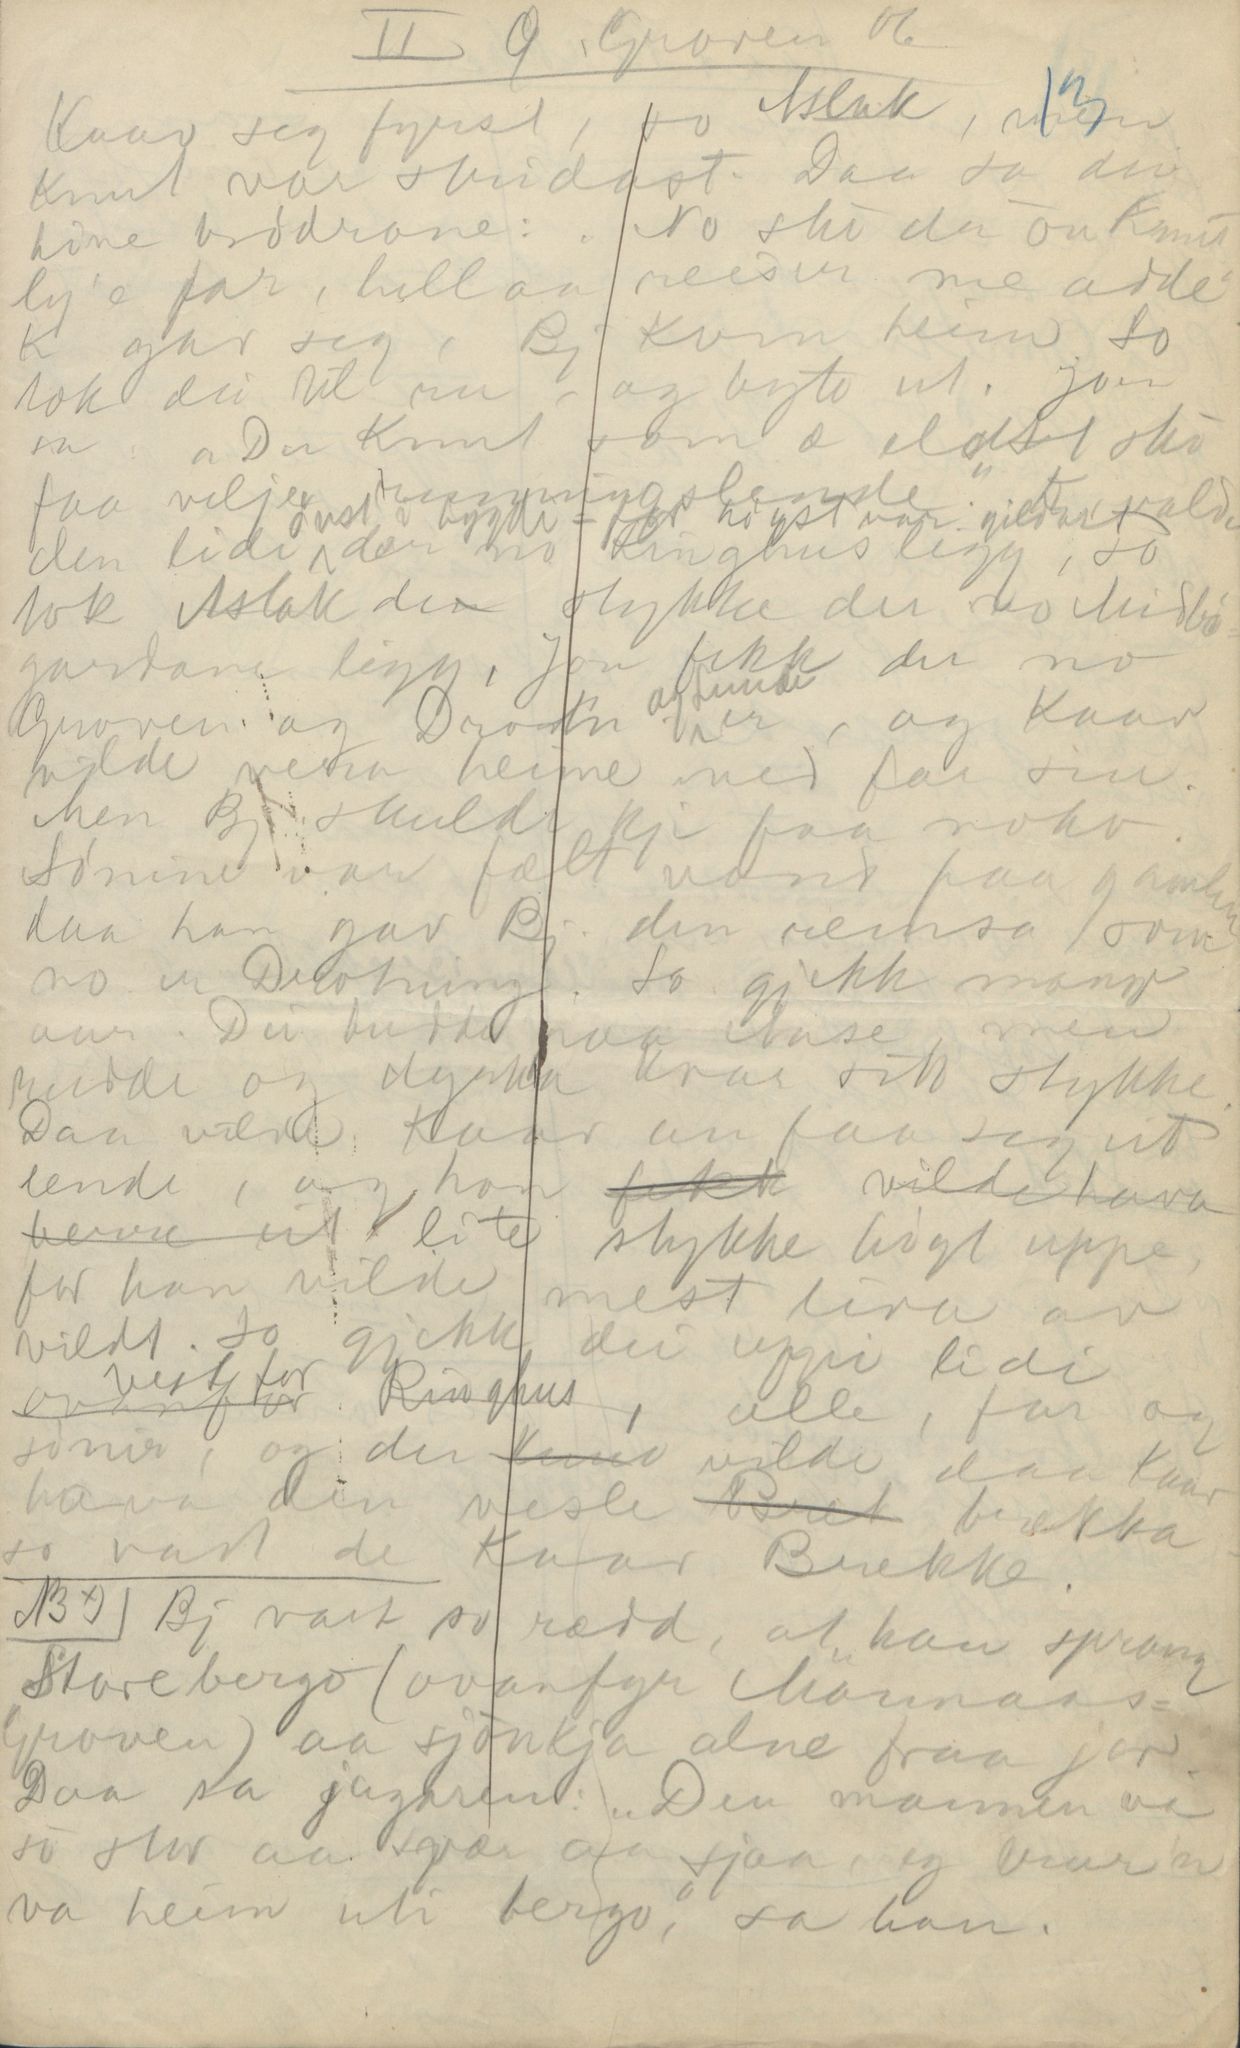 II O. Groven
13
Kaar seg fyrst, so Aslak, men
Knut var stridast. Daa sa dei
hine brødrane: „No sko du ou Knut
ly'e far, hell aa reiser me adde
K gav seg, Bj kom heim So
tok dei til ru og byto ut. Jon
sa: „Du Knut som æ eldst sko
faa velje rudningslende." valde
øvst i bygdi - for høgst var gildast
den lidi, der no Ringhus ligg, so
tok Aslak de stykke der no Midbø-
gardane ligg, Jon fekk der no
Groven og Drotn og Lunde er, og Kaar
vilde vera heime med far sin.
Men Bj. skulde kji faa noko.
Sønine var fælt vonde paa gamlen
daa han gav Bj. den reimsa som
no er Drotning. So gjekk mange
aar. Dei budde paa Aase, men
rudde og dyrka kvar sitt stykke.
Daa vilde Kaar au faa seg ut
lende, og han fekk vilde hava
berre eit lite stykke høgt uppe,
for han vilde mest liva av
vildt. So gjekk dei uppi lidi
ovanfor vest for Ringhus, alle, far og
sønir, og der vilde daa Kaar
hava den vesle Bret brekka
so vart de Kaar Brekke.
NB x) Bj vart so rædd, at han sprang
Storebergo (ovanfyr Mannaas-
Groven) aa sjønkja alne fraa jor.
Daa sa jagaren: „Den mannen va
so stor aa svær aa sjaa, og
va heim uti bergo," sa han.